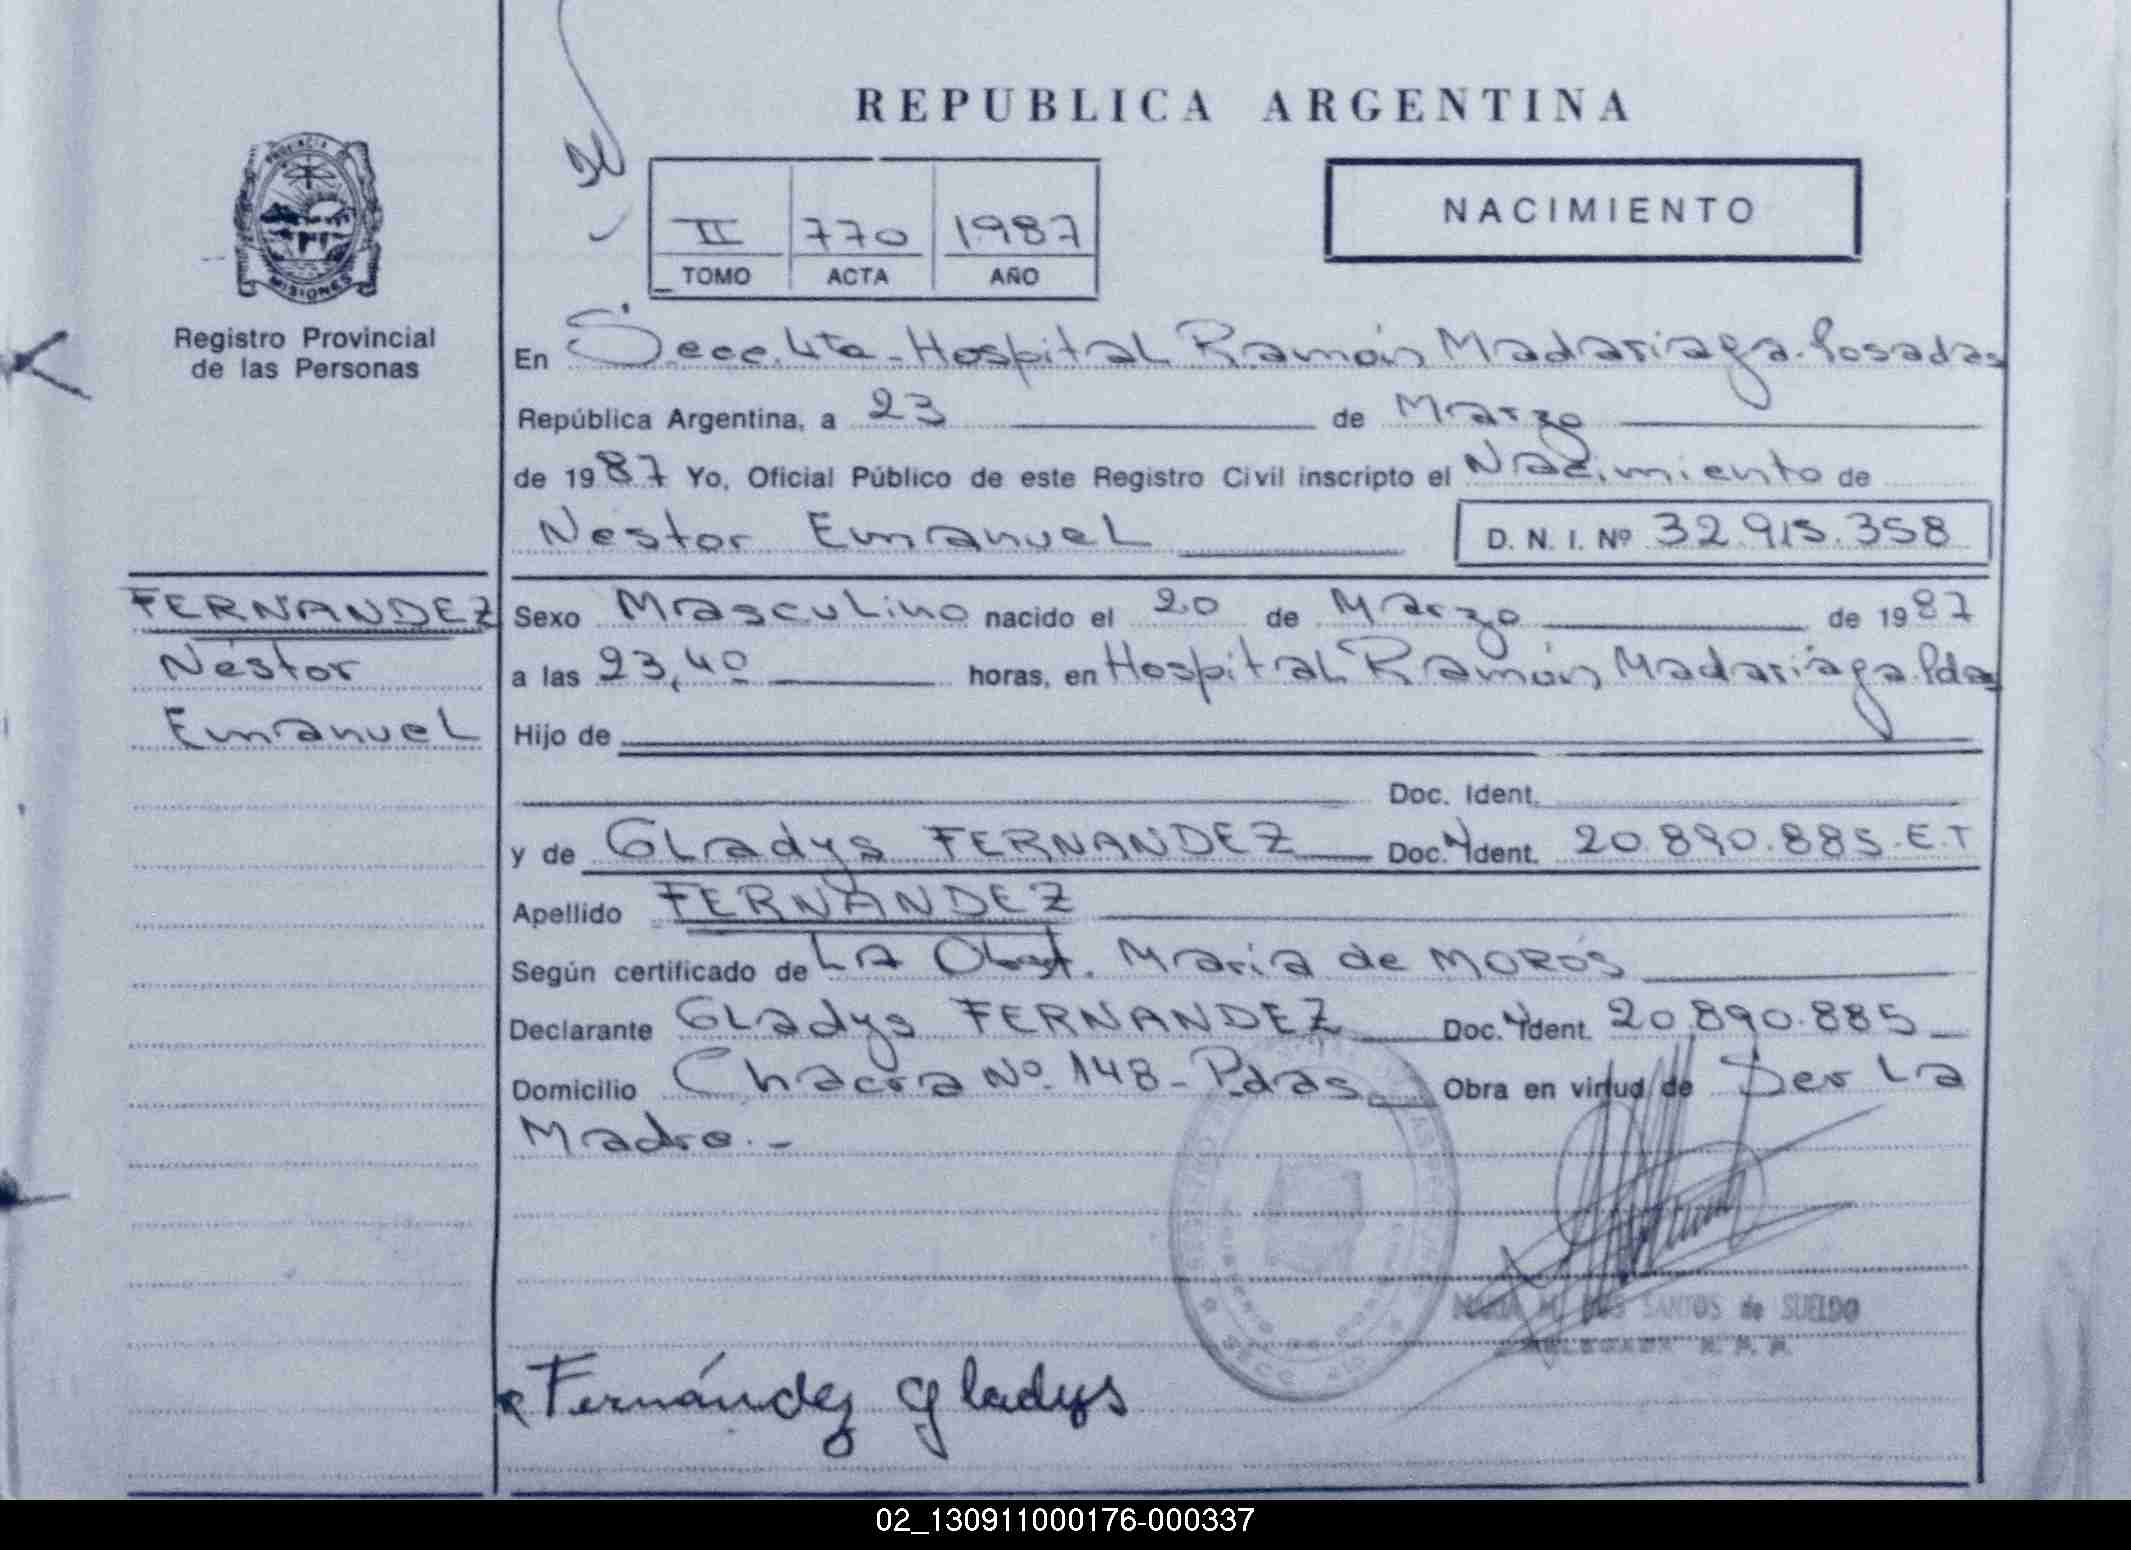 REPUBLICA ARGENTINA
PROVINCIA DE
MISIONES
Registro Provincial
de las Personas
II 770 1987
TOMO ACTA AÑO
NACIMIENTO
En Secc. 4ta - Hospital Ramón Madariaga. Posadas
República Argentina, a 23 de Marzo
de 1987 Yo, Oficial Público de este Registro Civil inscripto el Nacimiento de
Nestor Emanuel D. N. I. Nº 32.915.358
FERNANDEZ
Néstor
Emanuel
Sexo Masculino nacido el 20 de Marzo de 1987
a las 23,40 horas, en Hospital Ramón Madariaga. Pdas
Hijo de
Doc. Ident.
y de Gladys FERNANDEZ Doc. Ident. 20.890.885. E.T
Apellido FERNANDEZ
Según certificado de LA Obst. Maria de MOROS
Declarante Gladys FERNANDEZ Doc. Ident. 20.890.885
Domicilio Chacra Nº 148 - Pdas Obra en virtud de Ser La
Madre.-
SANTOS de SUELDO
Fernández Gladys
02_130911000176-000337